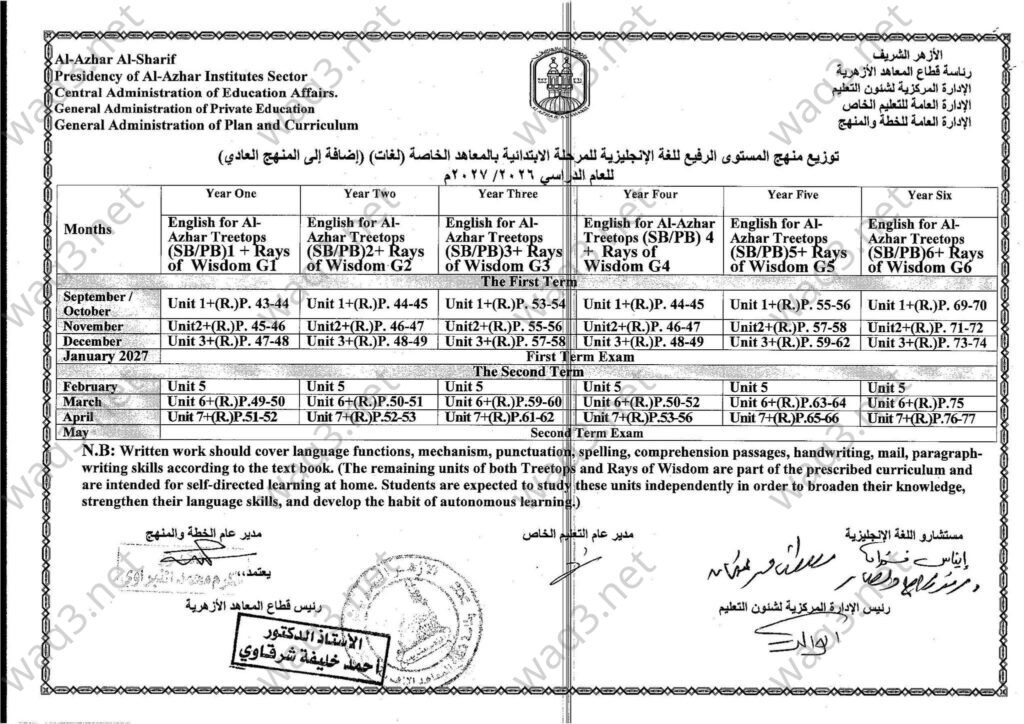 Al-Azhar Al-Sharif
Presidency of Al-Azhar Institutes Sector
Central Administration of Education Affairs.
General Administration of Private Education
General Administration of Plan and Curriculum
الأزهر الشريف
رئاسة قطاع المعاهد الأزهرية
الإدارة المركزية لشئون التعليم
الإدارة العامة للتعليم الخاص
الإدارة العامة للخطة والمنهج
توزيع منهج المستوى الرفيع للغة الإنجليزية للمرحلة الابتدائية بالمعاهد الخاصة (لغات) (إضافة إلى المنهج العادي)
للعام الدراسي ٢٠٢٦/ ٢٠٢٧م
Months
Year One
Year Two
Year Three
Year Four
Year Five
Year Six
English for Al-Azhar Treetops (SB/PB)1 + Rays of Wisdom G1
English for Al-Azhar Treetops (SB/PB)2+ Rays of Wisdom G2
English for Al-Azhar Treetops (SB/PB)3+ Rays of Wisdom G3
English for Al-Azhar Treetops (SB/PB) 4 + Rays of Wisdom G4
English for Al-Azhar Treetops (SB/PB)5+ Rays of Wisdom G5
English for Al-Azhar Treetops (SB/PB)6+ Rays of Wisdom G6
The First Term
September / October Unit 1+(R.)P. 43-44 Unit 1+(R.)P. 44-45 Unit 1+(R.)P. 53-54 Unit 1+(R.)P. 44-45 Unit 1+(R.)P. 55-56 Unit 1+(R.)P. 69-70
November Unit2+(R.)P. 45-46 Unit2+(R.)P. 46-47 Unit2+(R.)P. 55-56 Unit2+(R.)P. 46-47 Unit2+(R.)P. 57-58 Unit2+(R.)P. 71-72
December Unit 3+(R.)P. 47-48 Unit 3+(R.)P. 48-49 Unit 3+(R.)P. 57-58 Unit 3+(R.)P. 48-49 Unit 3+(R.)P. 59-62 Unit 3+(R.)P. 73-74
January 2027 First Term Exam
The Second Term
February Unit 5 Unit 5 Unit 5 Unit 5 Unit 5 Unit 5
March Unit 6+(R.)P.49-50 Unit 6+(R.)P.50-51 Unit 6+(R.)P.59-60 Unit 6+(R.)P.50-52 Unit 6+(R.)P.63-64 Unit 6+(R.)P.75
April Unit 7+(R.)P.51-52 Unit 7+(R.)P.52-53 Unit 7+(R.)P.61-62 Unit 7+(R.)P.53-56 Unit 7+(R.)P.65-66 Unit 7+(R.)P.76-77
May Second Term Exam
N.B: Written work should cover language functions, mechanism, punctuation, spelling, comprehension passages, handwriting, mail, paragraph-
writing skills according to the text book. (The remaining units of both Treetops and Rays of Wisdom are part of the prescribed curriculum and
are intended for self-directed learning at home. Students are expected to study these units independently in order to broaden their knowledge,
strengthen their language skills, and develop the habit of autonomous learning.)
مستشارو اللغة الإنجليزية
مدير عام التعليم الخاص
مدير عام الخطة والمنهج
يعتمد،،
رئيس الإدارة المركزية لشئون التعليم
رئيس قطاع المعاهد الأزهرية
الأستاذ الدكتور
أحمد خليفة شرقاوي
waq3.net